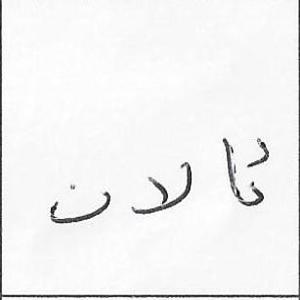 تالان